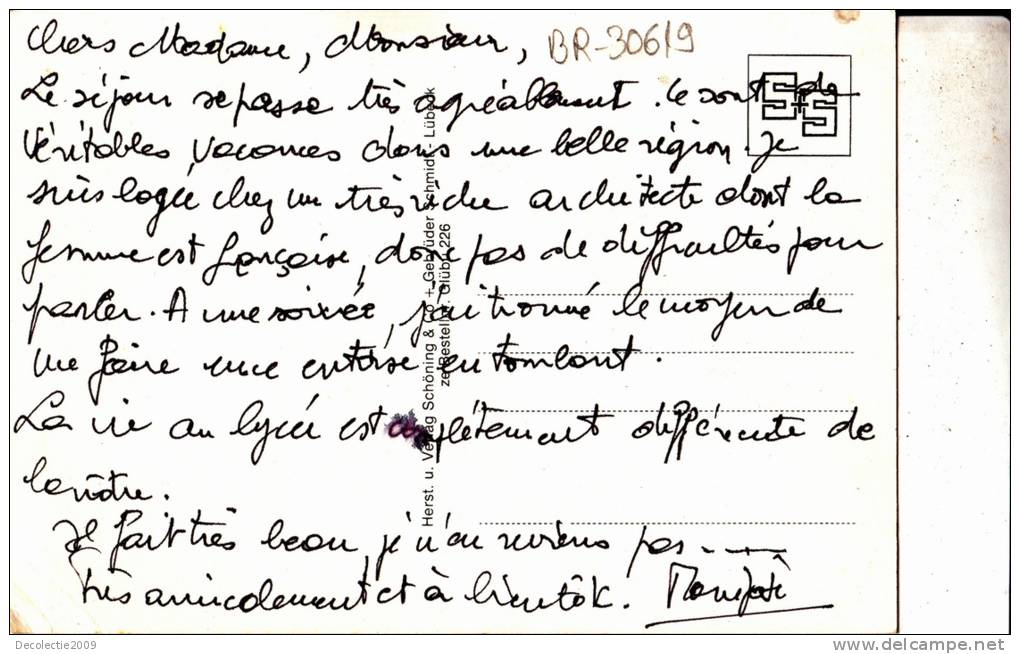 Chers Madame, Monsieur,
BR-306/9
Le séjour se passe très agréablement. Ce sont de
S+S
véritables vacances dans une belle région. Je
suis logée chez un très riche architecte dont la
femme est française, donc pas de difficultés pour
parler. A une soirée, j'ai trouvé le moyen de
me faire une entorse en tombant.
La vie au lycée est complètement différente de
la nôtre.
Il fait très beau, je n'en reviens pas -. —
très amicalement et à bientôt.
Herst. u. Verlag Schöning & Co + Gebrüder Schmidt - Lübeck
Bestell Nr. Glübu 226
Decolectie2009
www.delcampe.net